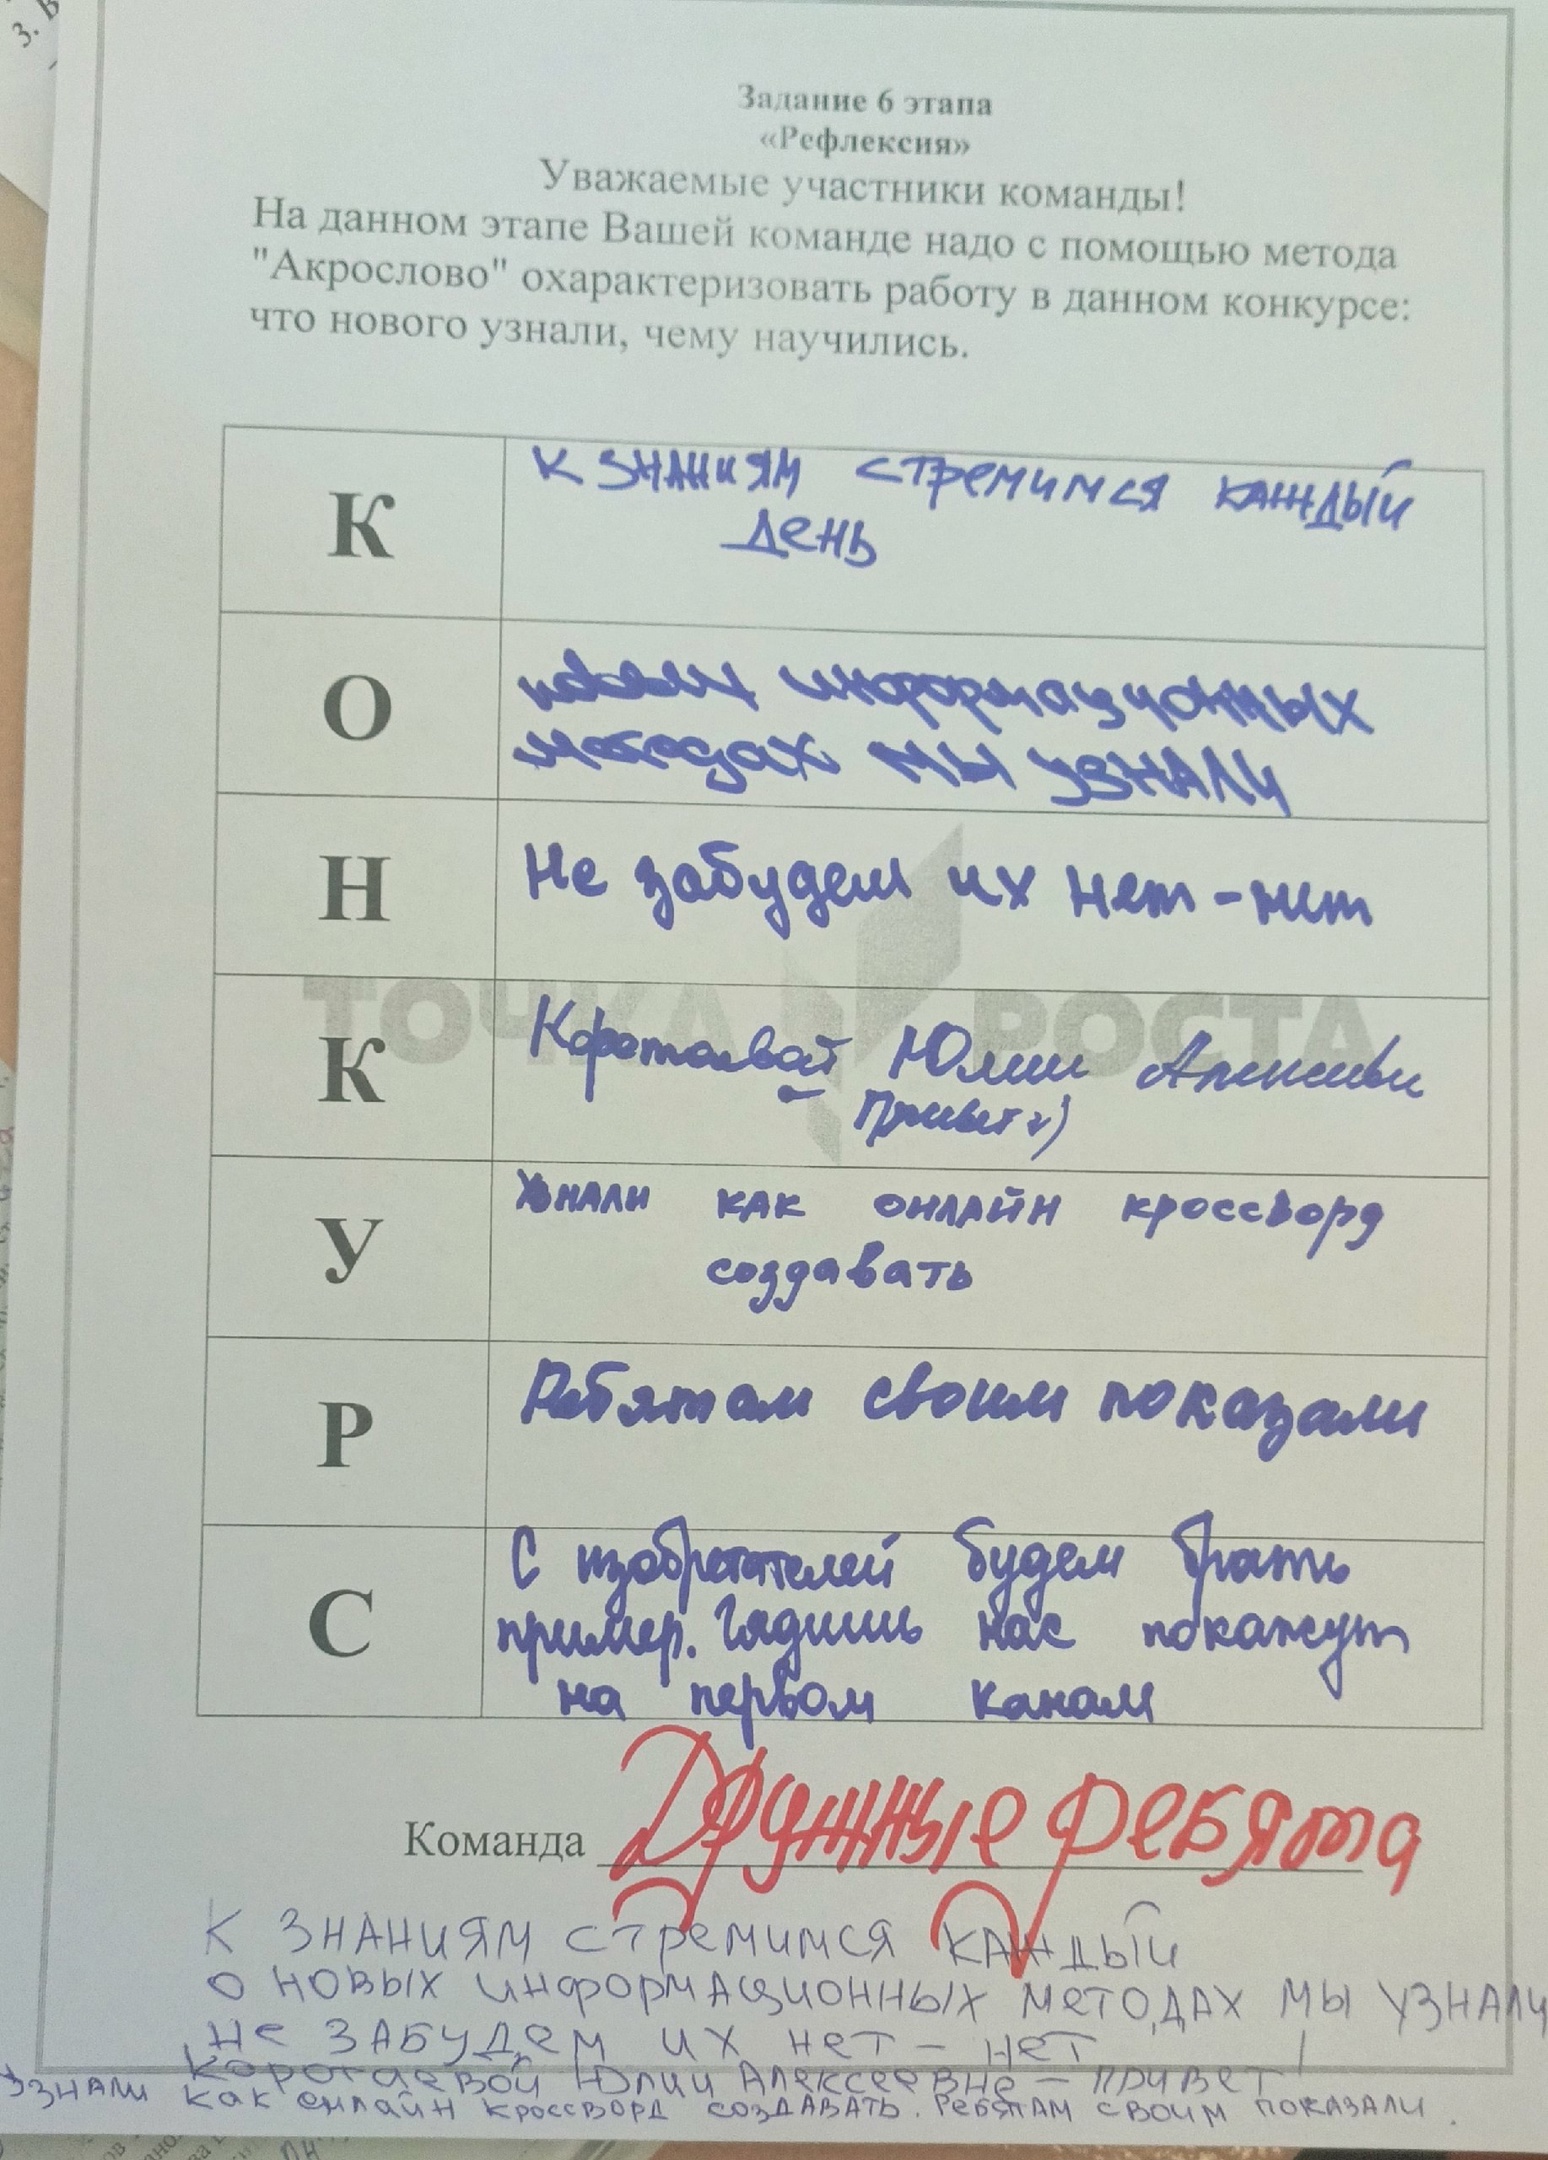 3. В
Задание 6 этапа
«Рефлексия»
Уважаемые участники команды!
На данном этапе Вашей команде надо с помощью метода
"Акрослово" охарактеризовать работу в данном конкурсе:
что нового узнали, чему научились.
К
К ЗНАНИЯМ стремимся каждый
день
О
новых информационных
методах мы узнали
Н
Не забудем их нет-нет
ТОЧКА РОСТА
К
Юлии
Привет :)
У
Узнали как онлайн кроссворд
создавать
Р
Ребятам своим показали
С
С изобретателей будем брать
пример. Гядишь нас покажут
на первом канале
Команда Дружные ребята
К ЗНАНИЯМ стремимся каждый
о новых информационных методах мы узнали
не забудем их нет - нет
Коротаевой Юлии Алексеевне - привет!
Узнали как онлайн кроссворд создавать. Ребятам своим показали.